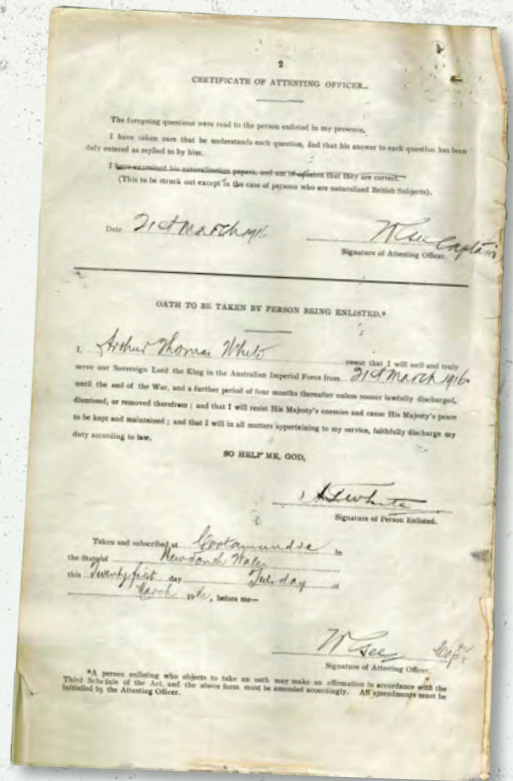 2
CERTIFICATE OF ATTESTING OFFICER.
The foregoing questions were read to the person enlisted in my presence.
I have taken care that he understands each question, and that his answer to each question has been
duly entered as replied to by him.
I have examined his naturalization papers, and am of opinion that they are correct.
(This to be struck out except in the case of persons who are naturalized British Subjects).
Date 21st March 1916 Captain
Signature of Attesting Officer.
OATH TO BE TAKEN BY PERSON BEING ENLISTED.*
I, Arthur Thomas White swear that I will well and truly
serve our Sovereign Lord the King in the Australian Imperial Force from 21st March 1916
until the end of the War, and a further period of four months thereafter unless sooner lawfully discharged,
dismissed, or removed therefrom ; and that I will resist His Majesty's enemies and cause His Majesty's peace
to be kept and maintained ; and that I will in all matters appertaining to my service, faithfully discharge my
duty according to law.
SO HELP ME, GOD,
A T White
Signature of Person Enlisted.
Taken and subscribed at Cootamundra in
the State of New South Wales
this Twenty first day Tuesday of
March 1916, before me—
W Gee Capt
Signature of Attesting Officer.
*A person enlisting who objects to take an oath may make an affirmation in accordance with the
Third Schedule of the Act, and the above form must be amended accordingly. All amendments must be
initialled by the Attesting Officer.